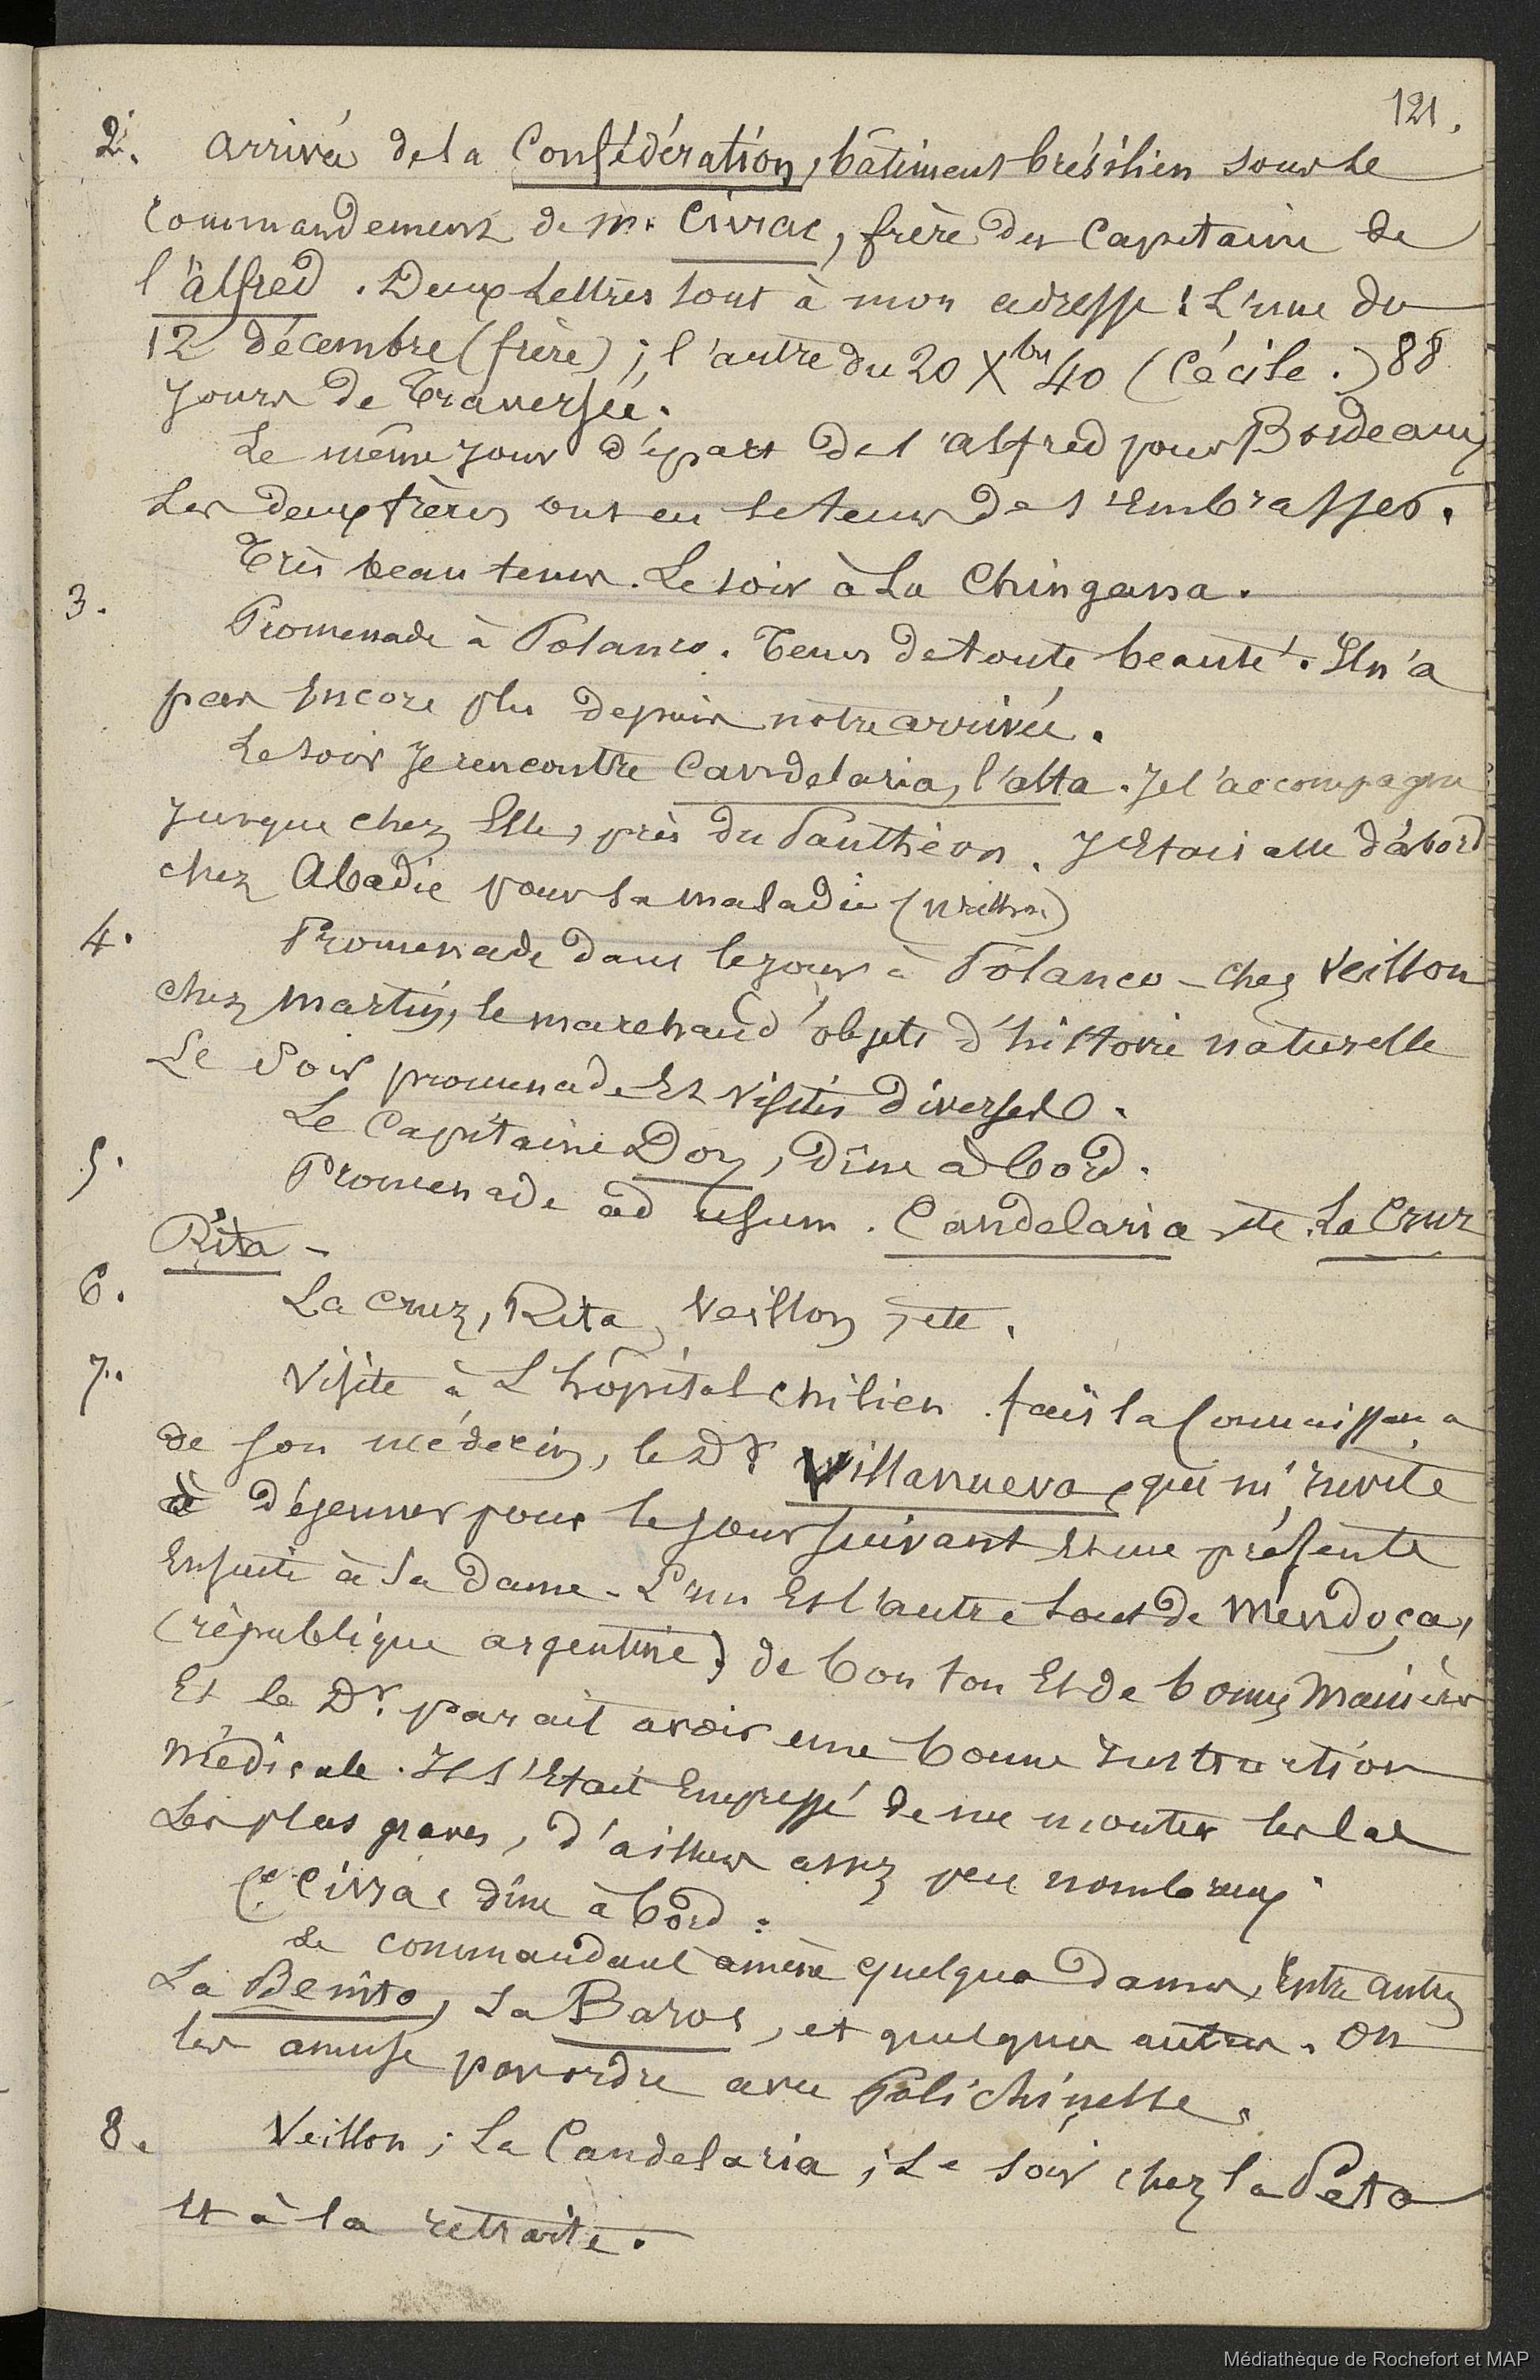 121.
2. arrivée de la Confédération, bâtiment brésilien sous le
commandement de M. Civrac, frère du Capitaine de
l'alfred. Deux Lettres sont à mon adresse : L'une du
12 décembre (frère) ; l'autre du 20 Xbre 40 (Cécile.) 88
jours de Traversée.
Le même jour départ de l'alfred pour Bordeaux
Les deux frères ont eu le tems de s'Embrasser.
Très beau tems. Le soir à La Chingana.
3.
Promenade à Polanco. Tems de toute beauté. Il n'a
pas Encore plu depuis notre arrivée.
Le soir Je rencontre Candelaria, l'alta. Je l'accompagne
Jusque chez Elle, près du Panthéon. J'Etais allé d'abord
chez Abadie pour sa maladie
4. Promenade dans le jour à Polanco - chez Veillon
chez Martin, le marchand d'objets d'histoire naturelle
Le Soir promenade Et visites diverses.
Le Capitaine Doy, dîne à bord.
5. Promenade ad usum. Candelaria etc. La Cruz
Rita -
6. La Cruz, Rita, Veillon, etc.
7. Visite à L'hôpital chilien. fais la Connaissance
de son médecin, le Dr Villanueva, qui m'invite
à déjeuner pour le jour suivant Et me présente
Ensuite à sa Dame - L'un Et l'autre sont de Mendoça,
(république argentine) de bon ton Et de bonnes Manières
Et le Dr. parait avoir une bonne Instruction
Médicale. Il s'Etait Empressé de me montrer les cas
Les plus graves, d'ailleurs assez peu nombreux.
Civrac dîne à bord.
Le commandant amène quelques Dames, Entre autres
La Benita, La Baros, et quelques autres. On
les amuse par ordre avec Polichinelle.
8. Veillon ; La Candelaria ; Le soir chez la Peta
Et à la retraite.
Médiathèque de Rochefort et MAP